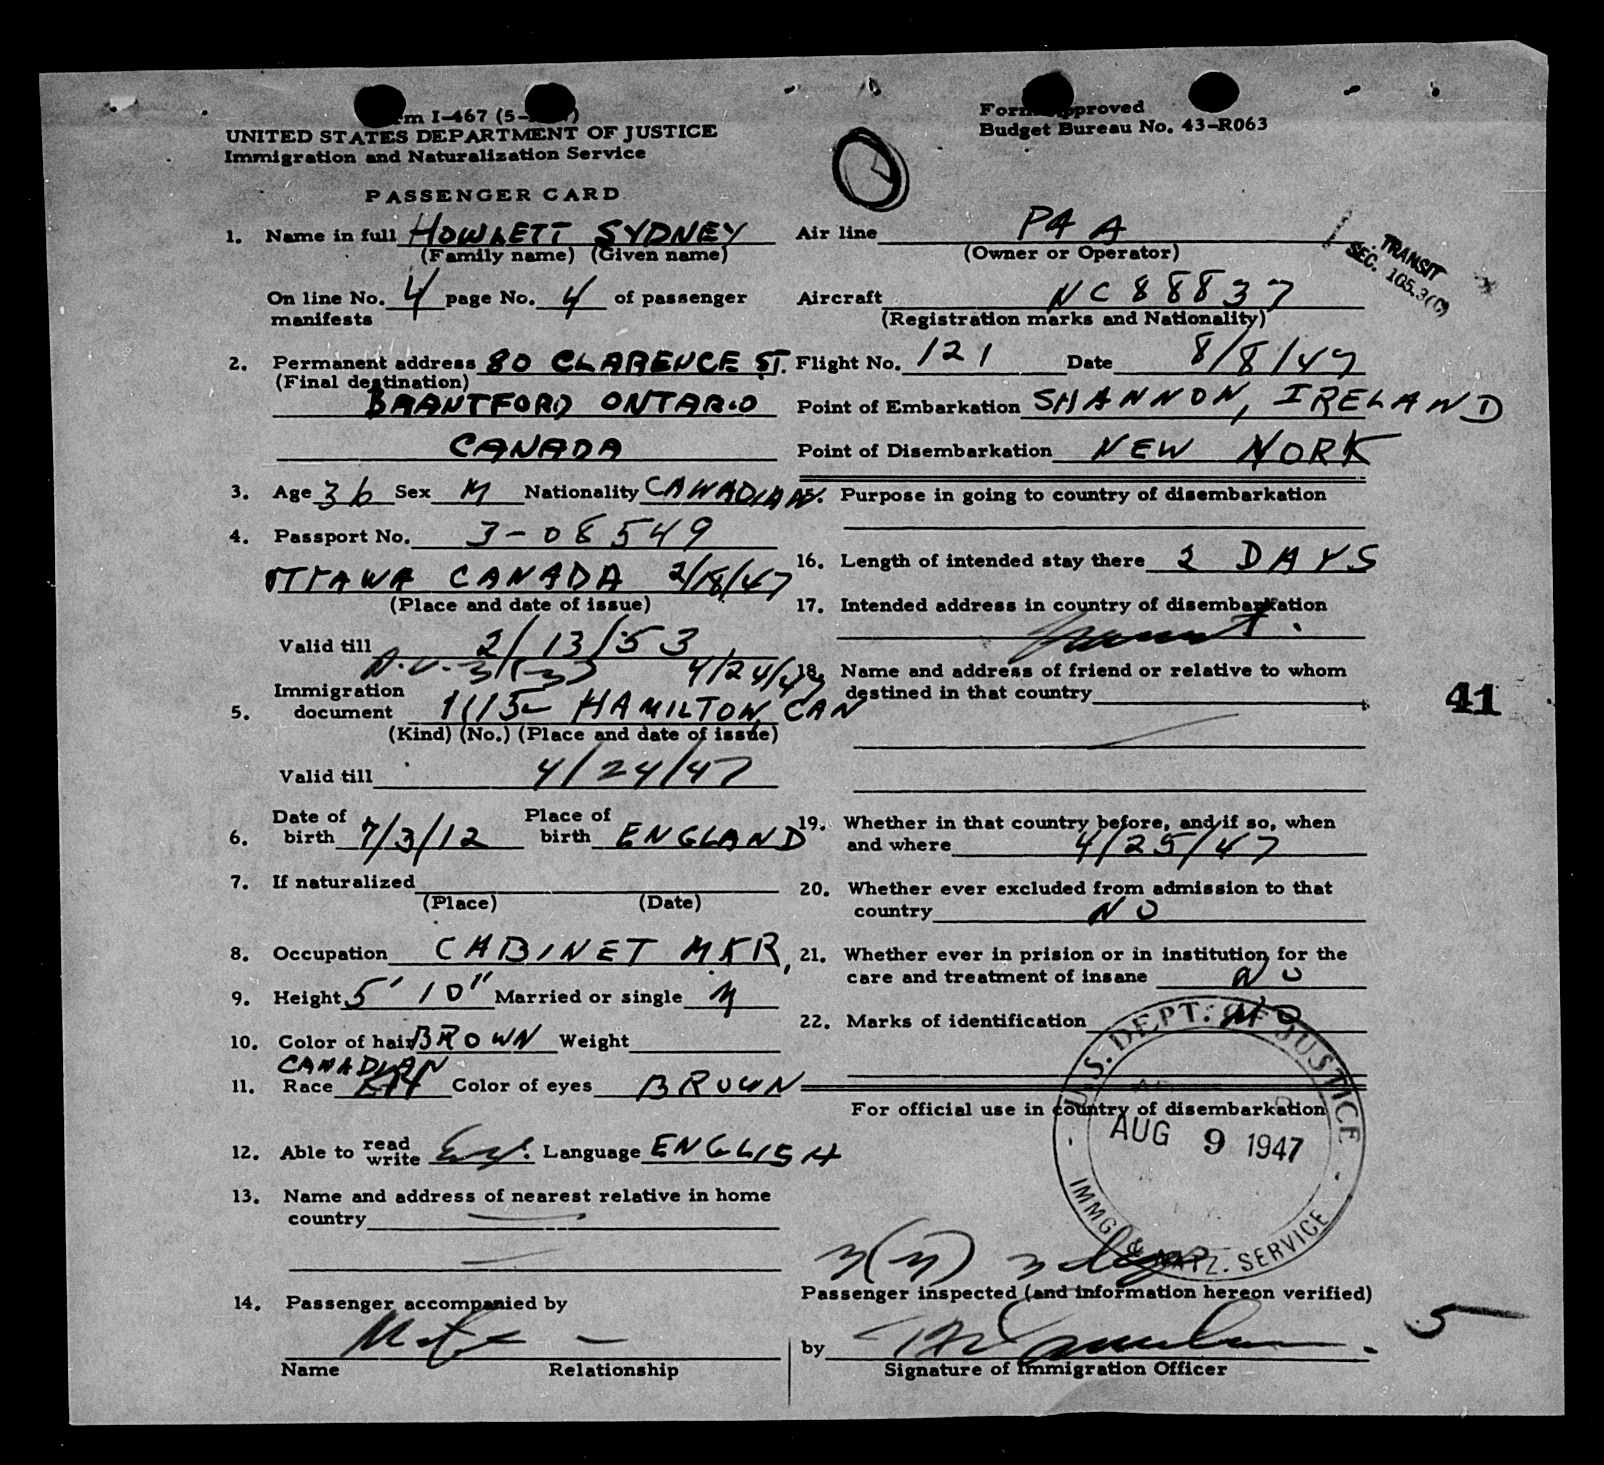 Form I-467 (5-
UNITED STATES DEPARTMENT OF JUSTICE
Immigration and Naturalization Service
Form Approved
Budget Bureau No. 43-R063
PASSENGER CARD
1. Name in full HOWLETT SYDNEY
(Family name) (Given name)
On line No. 4 page No. 4 of passenger
manifests
2. Permanent address 80 CLARENCE ST.
(Final destination)
BRANTFORD ONTARIO
CANADA
3. Age 36 Sex M Nationality CANADIAN
4. Passport No. 3-08549
OTTAWA CANADA 2/18/47
(Place and date of issue)
Valid till 2/13/53
4/24/47
Immigration
5. document 1115 HAMILTON, CAN
(Kind) (No.) (Place and date of issue)
Valid till 4/24/47
Date of Place of
6. birth 7/3/12 birth ENGLAND
7. If naturalized
(Place) (Date)
8. Occupation CABINET MKR,
9. Height 5' 10" Married or single M
10. Color of hair BROWN Weight
CANADIAN
11. Race Color of eyes BROWN
12. Able to read write Language ENGLISH
13. Name and address of nearest relative in home
country
14. Passenger accompanied by
Name Relationship
Air line PAA
(Owner or Operator)
TRANSIT
SEC. 105.3(C)
Aircraft NC88837
(Registration marks and Nationality)
Flight No. 121 Date 8/8/47
Point of Embarkation SHANNON, IRELAND
Point of Disembarkation NEW YORK
15. Purpose in going to country of disembarkation
16. Length of intended stay there 2 DAYS
17. Intended address in country of disembarkation
18. Name and address of friend or relative to whom
destined in that country
41
19. Whether in that country before, and if so, when
and where 4/25/47
20. Whether ever excluded from admission to that
country NO
21. Whether ever in prision or in institution for the
care and treatment of insane NO
22. Marks of identification NO
For official use in country of disembarkation
U.S. DEPT. OF JUSTICE
AUG 9 1947
IMMG. & NATZ. SERVICE
Passenger inspected (and information hereon verified)
by
Signature of Immigration Officer
5